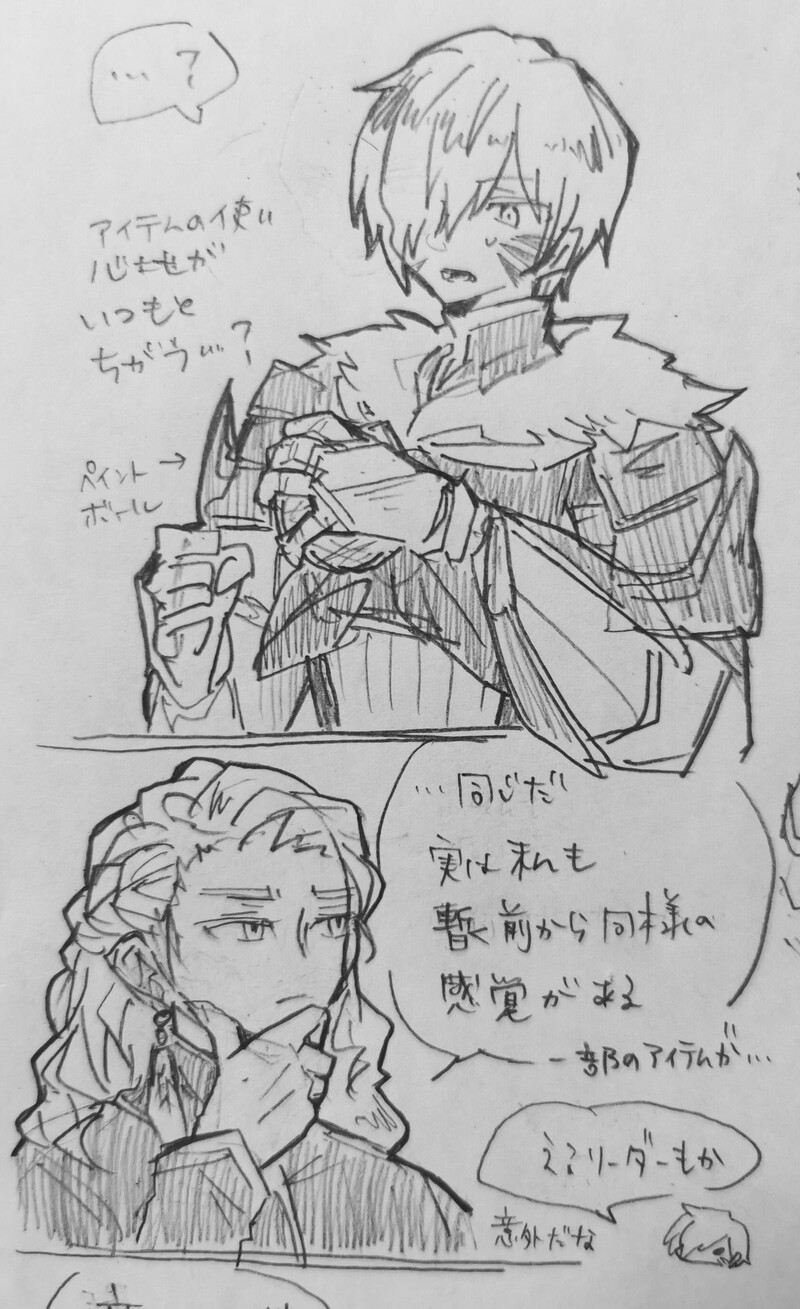 …?
アイテムの使い
心地が
いつもと
ちがう…?
ペイント→
ボール
…同じだ
実は私も
暫く前から同様の
感覚がある
一部のアイテムが…
え?リーダーもか
意外だな